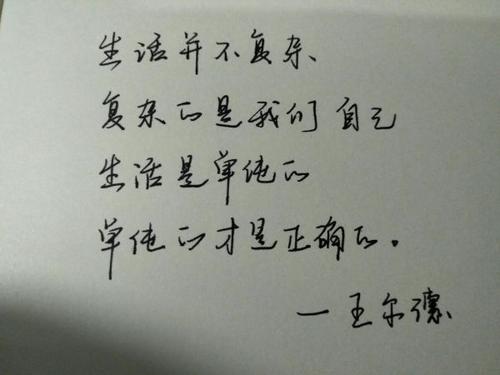 生活并不复杂、
复杂的是我们自己
生活是单纯的
单纯的才是正确的。
—王尔德